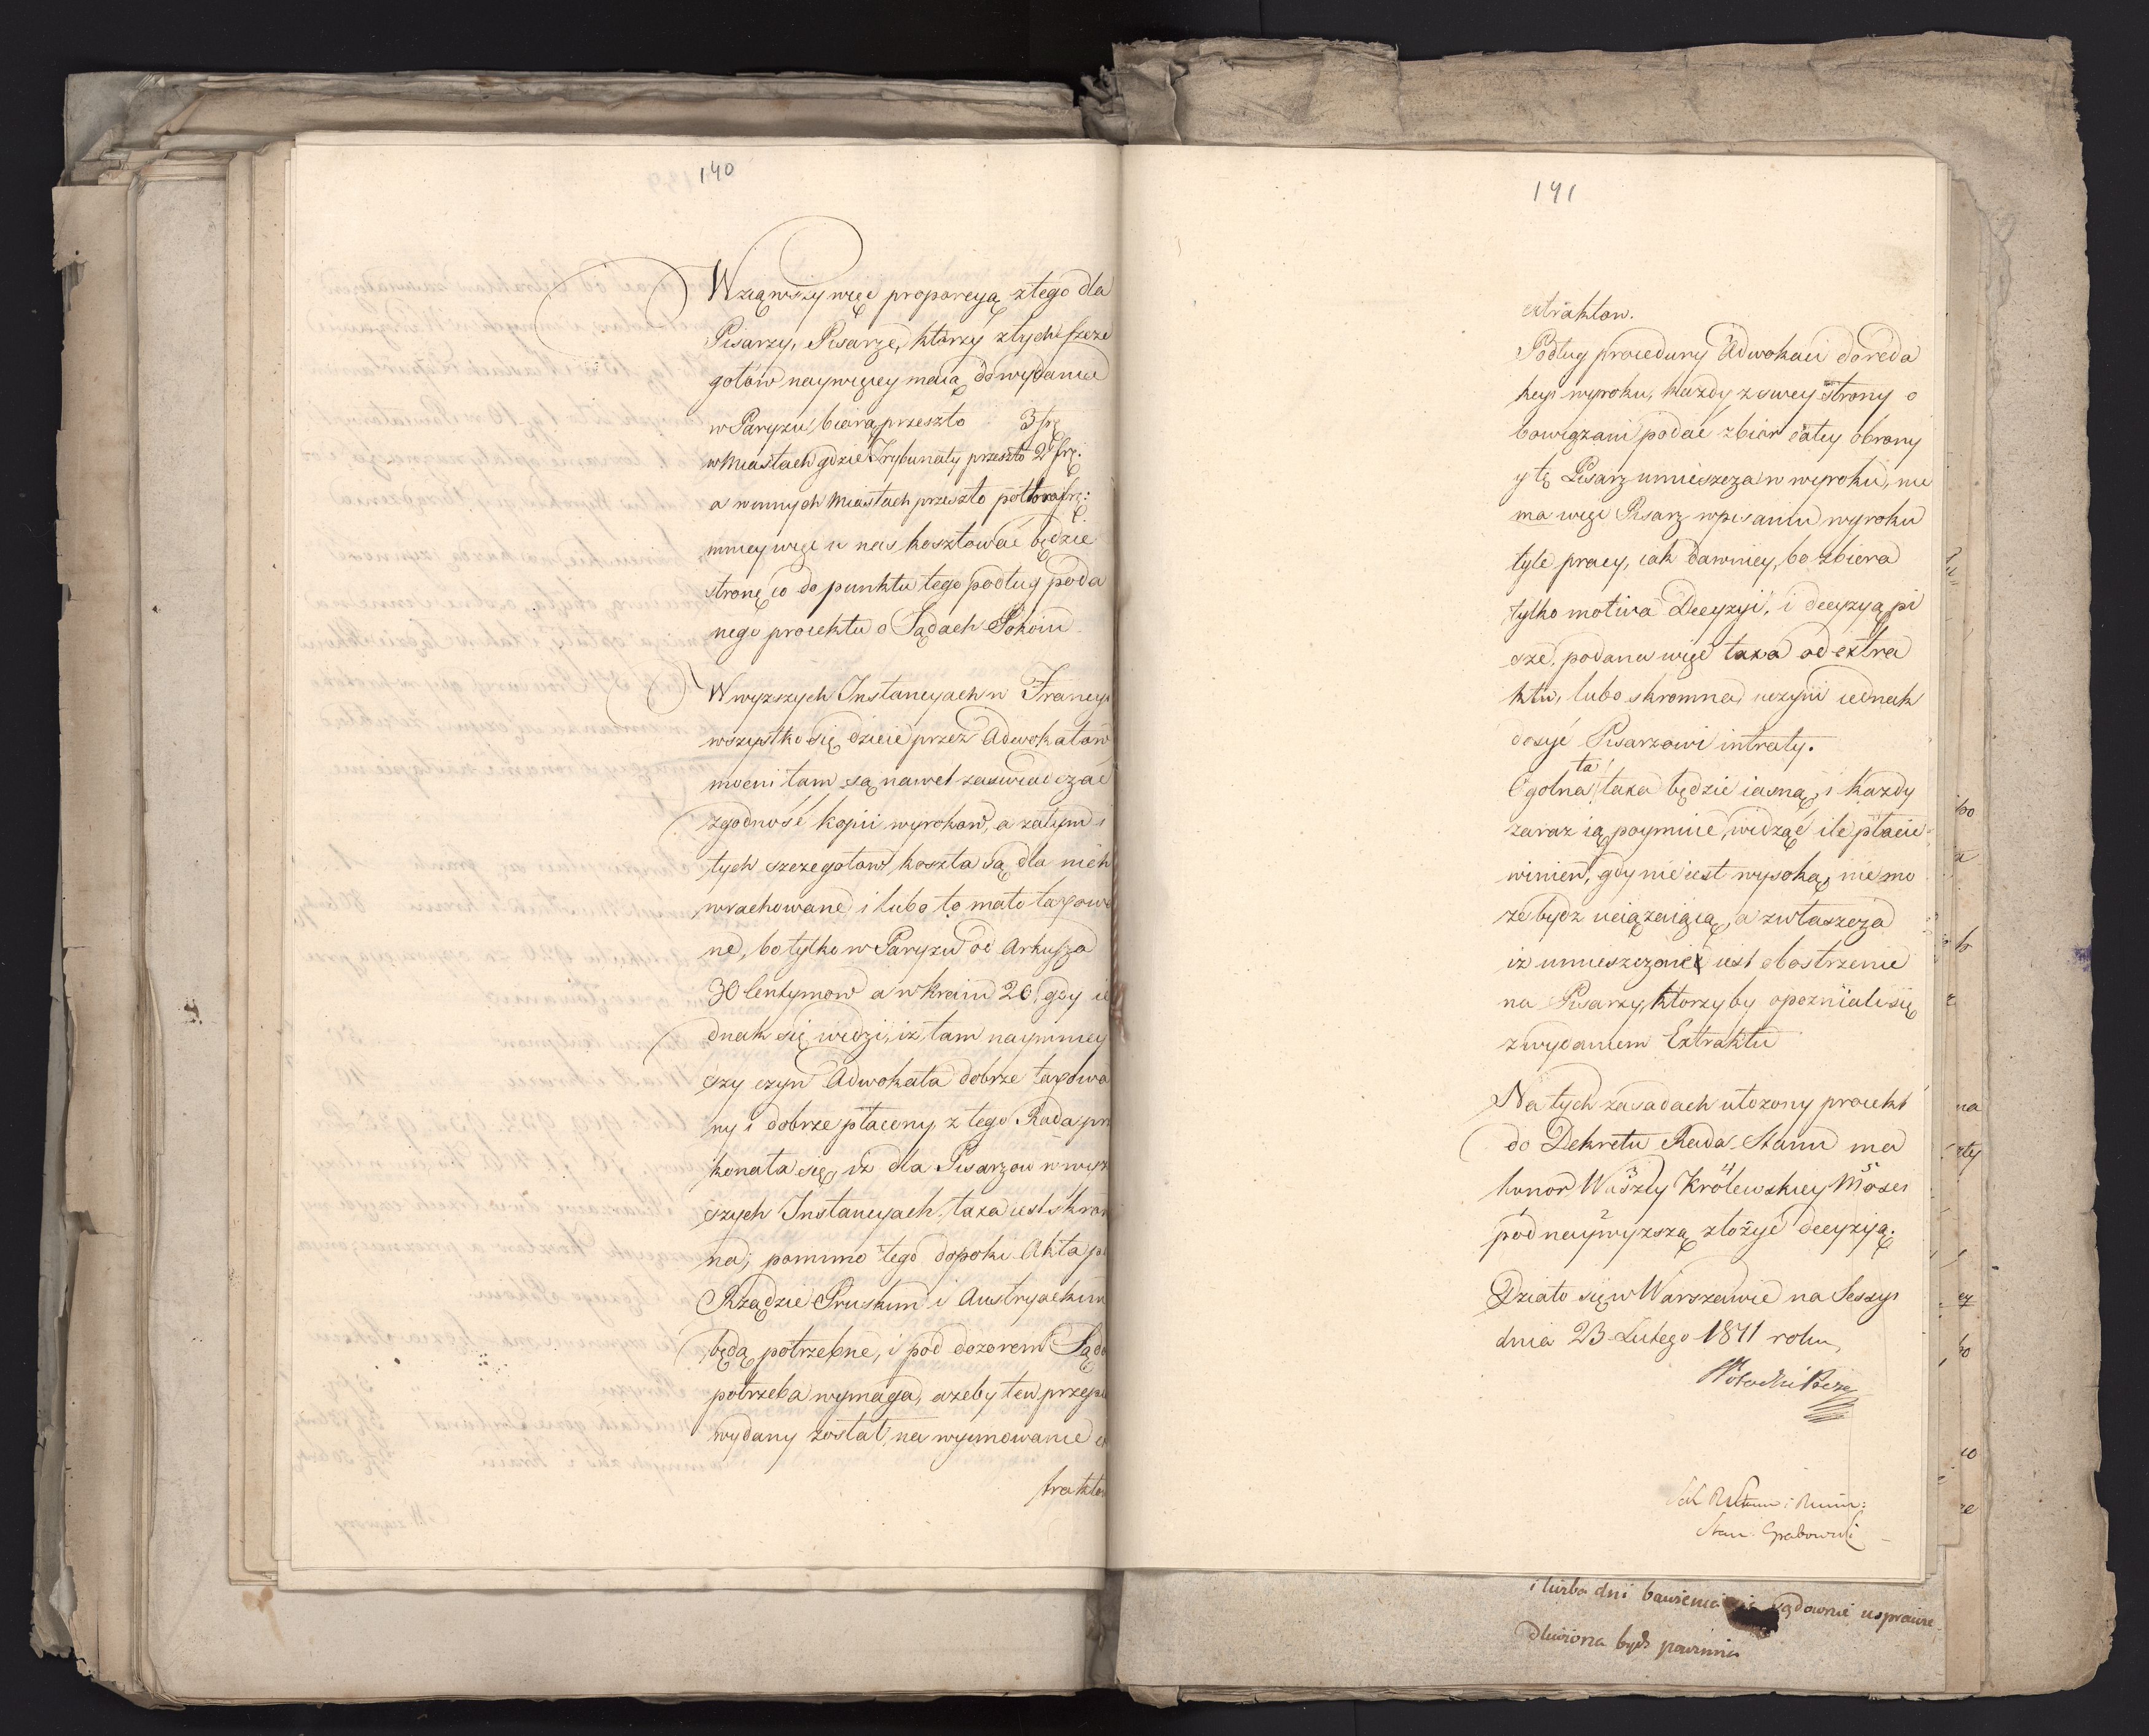 140
Wziąwszy więc proporcyą z tego dla
Pisarzy, Pisarze, ktorzy z tych szcze
gołow naywięcey maią do wydania
w Paryzu biorą przeszło 3 frę
w Miastach gdzie Trybunały przeszło 2 frę:
a w innych Miastach przeszło połtora frę:
mniey więc u nas kosztować będzie
stronę co do punktu tego podług poda
nego proiektu o Sądach Pokoiu
W wyzszych Instancyach w Francyi
wszystko się dzieie przez Adwokatow
mocni tam są nawet zaswiadczać
zgodność kopii wyrokow, a zatym i
tych szczegołow koszta są dla nich
wrachowane i lubo to mało taxowa
ne, bo tylko w Paryzu od Arkusza
30 Centymow a w kraiu 20, gdy ie
dnak się widzi, iz tam naymniey
szy czyn Adwokata dobrze taxowa
ny i dobrze płacony, z tego Rada prze
konała się iz dla Pisarzow w wyz
szych Instancyach taxa iest skrom
na; pomimo tego dopoki Akta po
Rządzie Pruskim i Austryackim
będą potrzebne, i pod dozorem Sądo
potrzeba wymaga, azeby ten przepis
wydany został, na wyimowanie ex
traktow
141
extraktow.
Podług procedury Adwokaci do reda
kcyi wyroku, kazdy z swey strony o
bowiązani podać zbior całey obrony
y tę Pisarz umieszcza w wyroku, nie
ma więc Pisarz w pisaniu wyroku
tyle pracy, iak dawniey, bo zbiera
tylko motiva Decyzyi, i decyzyą pi
sze, podana więc taxa od extra
ktu, lubo skromna, uczyni iednak
dosyć Pisarzowi intraty.
ta
Ogolna taxa będzie iasną, i kazdy
zaraz ią poymie, widząc ile płacić
winien, gdy nie iest wysoką, nie mo
ze bydz uciązaiącą, a zwłaszcza
iz umieszczone iest obostrzenie
na Pisarzy, ktorzyby opozniali się
z wydaniem Extraktu
Na tych zasadach ułozony proiekt
do Dekretu Rada Stanu ma
3 4 5
honor Waszey Krolewskiey Mości
2
pod naywyzszą złożyć decyzyą.
Działo się w Warszawie na Sessyi
dnia 23 Lutego 1811 roku
Stan: Grabowski
i liczba dni bawienia się sądownie usprawie
dliwiona bydz powinna